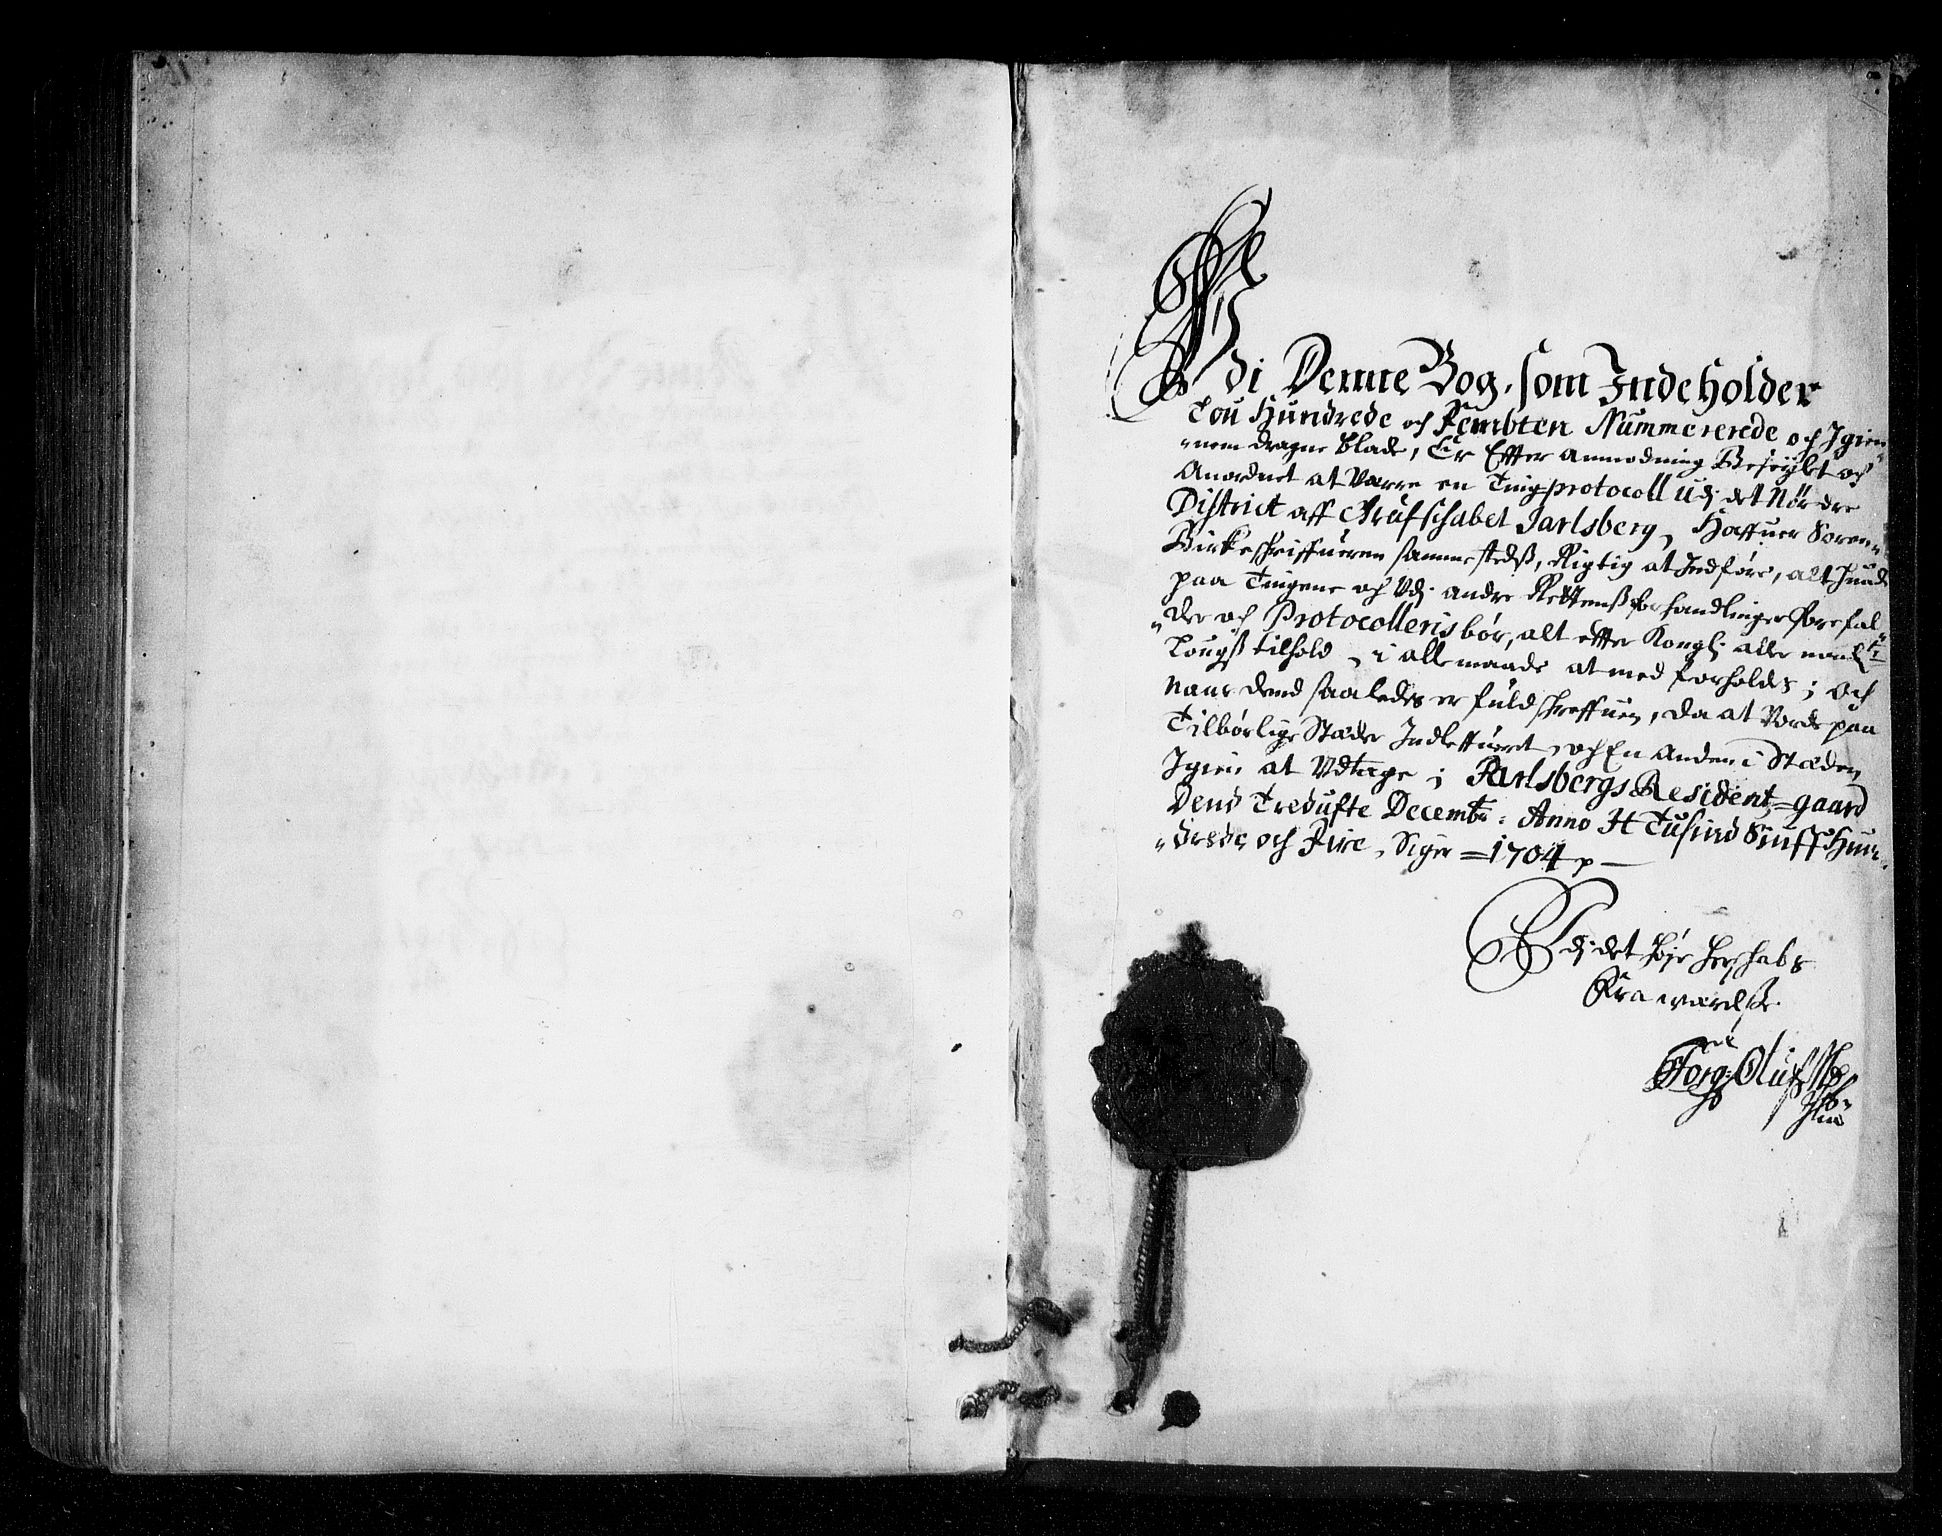 Udi Denne Bog, som Indeholder
Tou Hundrede och Fembten Nummererede och Igien-
nem dragne blade, Er Effter anmodning Beseiglet och
Anordnet at Værre en Tingprotocoll Udj det Nørdre
District aff Grafschabet Jarlsberg, Haffuer Soren-
Birkeschriffueren sammestedß, Rigtig at Indføre, alt huad
paa Tingene och Udj andre Rettenß forhandlinger forefal-
der och Protocolleris bør, alt effter Kongl: aller naad:
Lougß tilhold, i alle maade at med forholdes; och
naar dend saaledes er fuldschreffuen, da at Vorde paa
Tilbørlige Stæder Indleffueret, och En Anden i Stæden
Igien at Udtage; Jarlsbergs Resident-gaard
Dend Tredufte Decembr: Anno Et Tusind Siuff Hun-
drede och Fire, Siger =1704
Udj det høje Herschabs
Fra wærelse
Jorg: Oluf